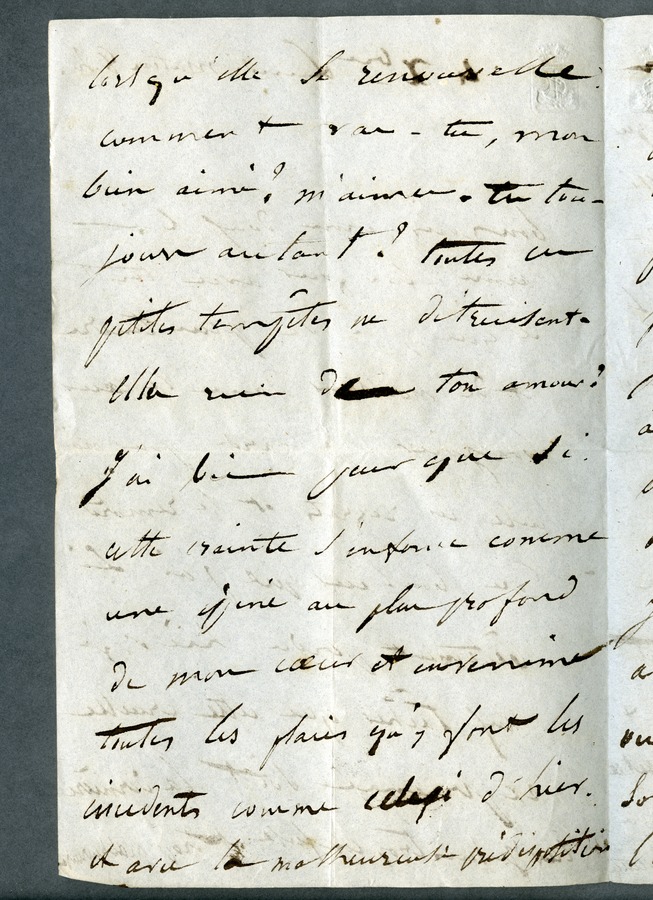 lorsqu'elle se renouvelle.
comment vas-tu, mon
bien aimé? m'aimes-tu tou-
jours autant? toutes ces
petites tempêtes ne détruisent-
elles rien de ton amour?
J'ai bien peur que si.
cette crainte s'enfonce comme
une épine au plus profond
de mon cœur et envenime
toutes les plaies qu'y font les
incidents comme celui d'hier.
et avec la malheureuse prédisposition